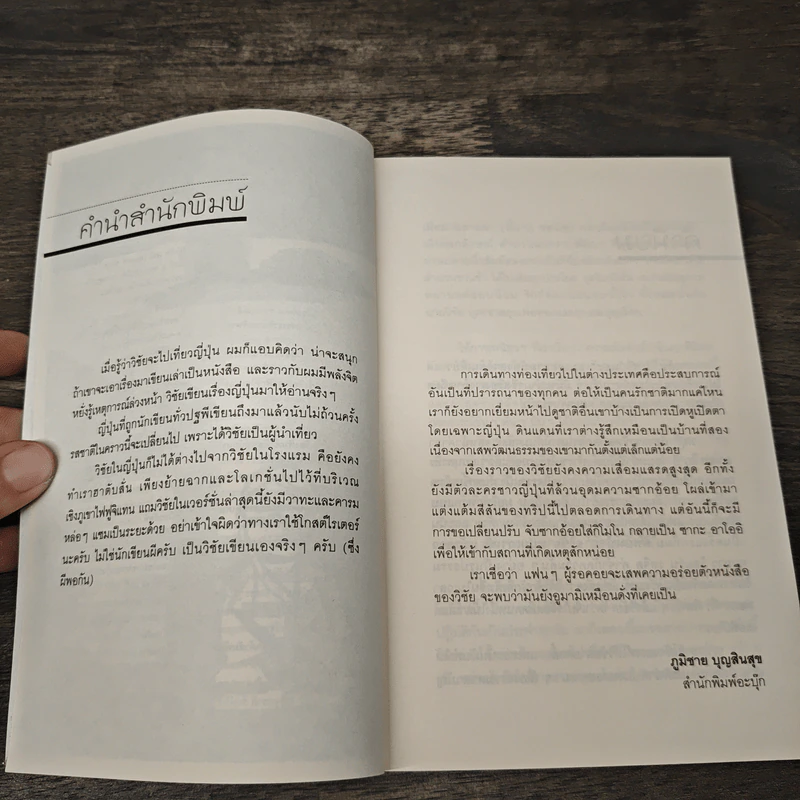 คำนำสำนักพิมพ์
เมื่อรู้ว่าวิชัยจะไปเที่ยวญี่ปุ่น ผมก็แอบคิดว่า น่าจะสนุก
ถ้าเขาจะเอาเรื่องมาเขียนเล่าเป็นหนังสือ และราวกับผมมีพลังจิต
หยั่งรู้เหตุการณ์ล่วงหน้า วิชัยเขียนเรื่องญี่ปุ่นมาให้อ่านจริงๆ
ญี่ปุ่นที่ถูกนักเขียนทั่วปฐพีเขียนถึงมาแล้วนับไม่ถ้วนครั้ง
รสชาติในคราวนี้จะเปลี่ยนไป เพราะได้วิชัยเป็นผู้นำเที่ยว
วิชัยในญี่ปุ่นก็ไม่ได้ต่างไปจากวิชัยในโรงแรม คือยังคง
ทำเราฮาดับสั่น เพียงย้ายฉากและโลเกชั่นไปไว้ที่บริเวณ
เชิงภูเขาไฟฟูจิแทน แถมวิชัยในเวอร์ชั่นล่าสุดนี้ยังมีวาทะและคารม
หล่อๆ แซมเป็นระยะด้วย อย่าเข้าใจผิดว่าทางเราใช้โกสต์ไรเตอร์
นะครับ ไม่ใช่นักเขียนผีครับ เป็นวิชัยเขียนเองจริงๆ ครับ (ซึ่ง
ผีพอกัน)
การเดินทางท่องเที่ยวไปในต่างประเทศคือประสบการณ์
อันเป็นที่ปรารถนาของทุกคน ต่อให้เป็นคนรักชาติมากแค่ไหน
เราก็ยังอยากเยี่ยมหน้าไปดูชาติอื่นเขาบ้างเป็นการเปิดหูเปิดตา
โดยเฉพาะญี่ปุ่น ดินแดนที่เราต่างรู้สึกเหมือนเป็นบ้านที่สอง
เนื่องจากเสพวัฒนธรรมของเขามากันตั้งแต่เล็กแต่น้อย
เรื่องราวของวิชัยยังคงความเสื่อมแสรดสูงสุด อีกทั้ง
ยังมีตัวละครชาวญี่ปุ่นที่ล้วนอุดมความซากอ้อย โผล่เข้ามา
แต่งแต้มสีสันของทริปนี้ไปตลอดการเดินทาง แต่อันนี้ก็จะมี
การขอเปลี่ยนปรับ จับซากอ้อยใส่กิโมโน กลายเป็น ซากะ อาโออิ
เพื่อให้เข้ากับสถานที่เกิดเหตุสักหน่อย
เราเชื่อว่า แฟนๆ ผู้รอคอยจะเสพความอร่อยตัวหนังสือ
ของวิชัย จะพบว่ามันยังอูมามิเหมือนดั่งที่เคยเป็น
ภูมิชาย บุญสินสุข
สำนักพิมพ์อะบุ๊ก